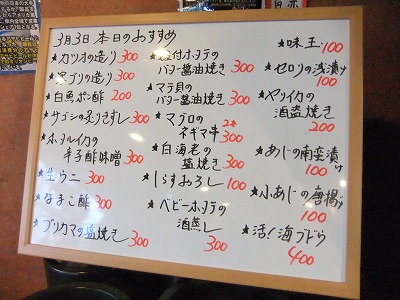 3月3日 本日のおすすめ
★カツオの造り 300
★寒ブリの造り 300
★白魚ポン酢 200
★サゴシの炙りきずし 300
★ホタルイカの
辛子酢味噌 300
★生ウニ 300
★なまこ酢 300
★ブリカマの塩焼き 300
付ホタテの
バター醤油焼き 300
★マテ貝の
バター醤油焼き 300
★マグロの
ネギマ串 2本 300
★白海老の
塩焼き 300
★しらすおろし 100
★ベビーホタテの
酒蒸し 300
★味玉 100
★セロリの浅漬け 100
★ヤリイカの
酒盗焼き 200
★あじの南蛮漬け 100
★小あじの唐揚げ 100
★活!海ブドウ 400